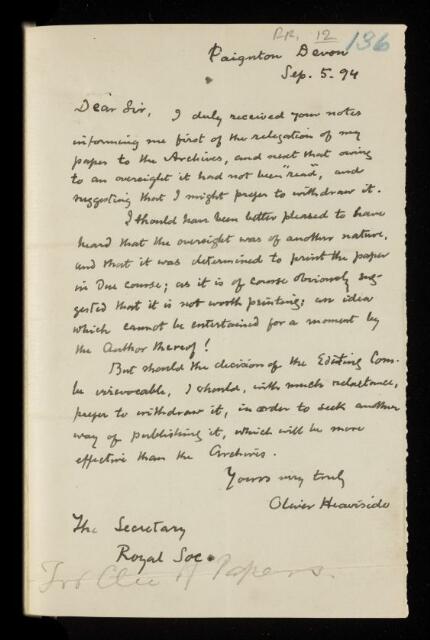 RR. 12 136
Paignton Devon
Sep. 5. 94
Dear Sir, I duly received your notes
informing me first of the relegation of my
paper to the Archives, and next that owing
to an oversight it had not been "read", and
suggesting that I might prefer to withdraw it.
I should have been better pleased to have
heard that the oversight was of another nature,
and that it was determined to print the paper
in Due course; as it is of course obviously sug-
gested that it is not worth printing; an idea
which cannot be entertained for a moment by
the Author thereof!
But should the decision of the Editing Com.
be irrevocable, I should, with much reluctance,
prefer to withdraw it, in order to seek another
way of publishing it, which will be more
effective than the Archives.
Yours very truly
Oliver Heaviside
The Secretary
Royal Soc.
Papers.